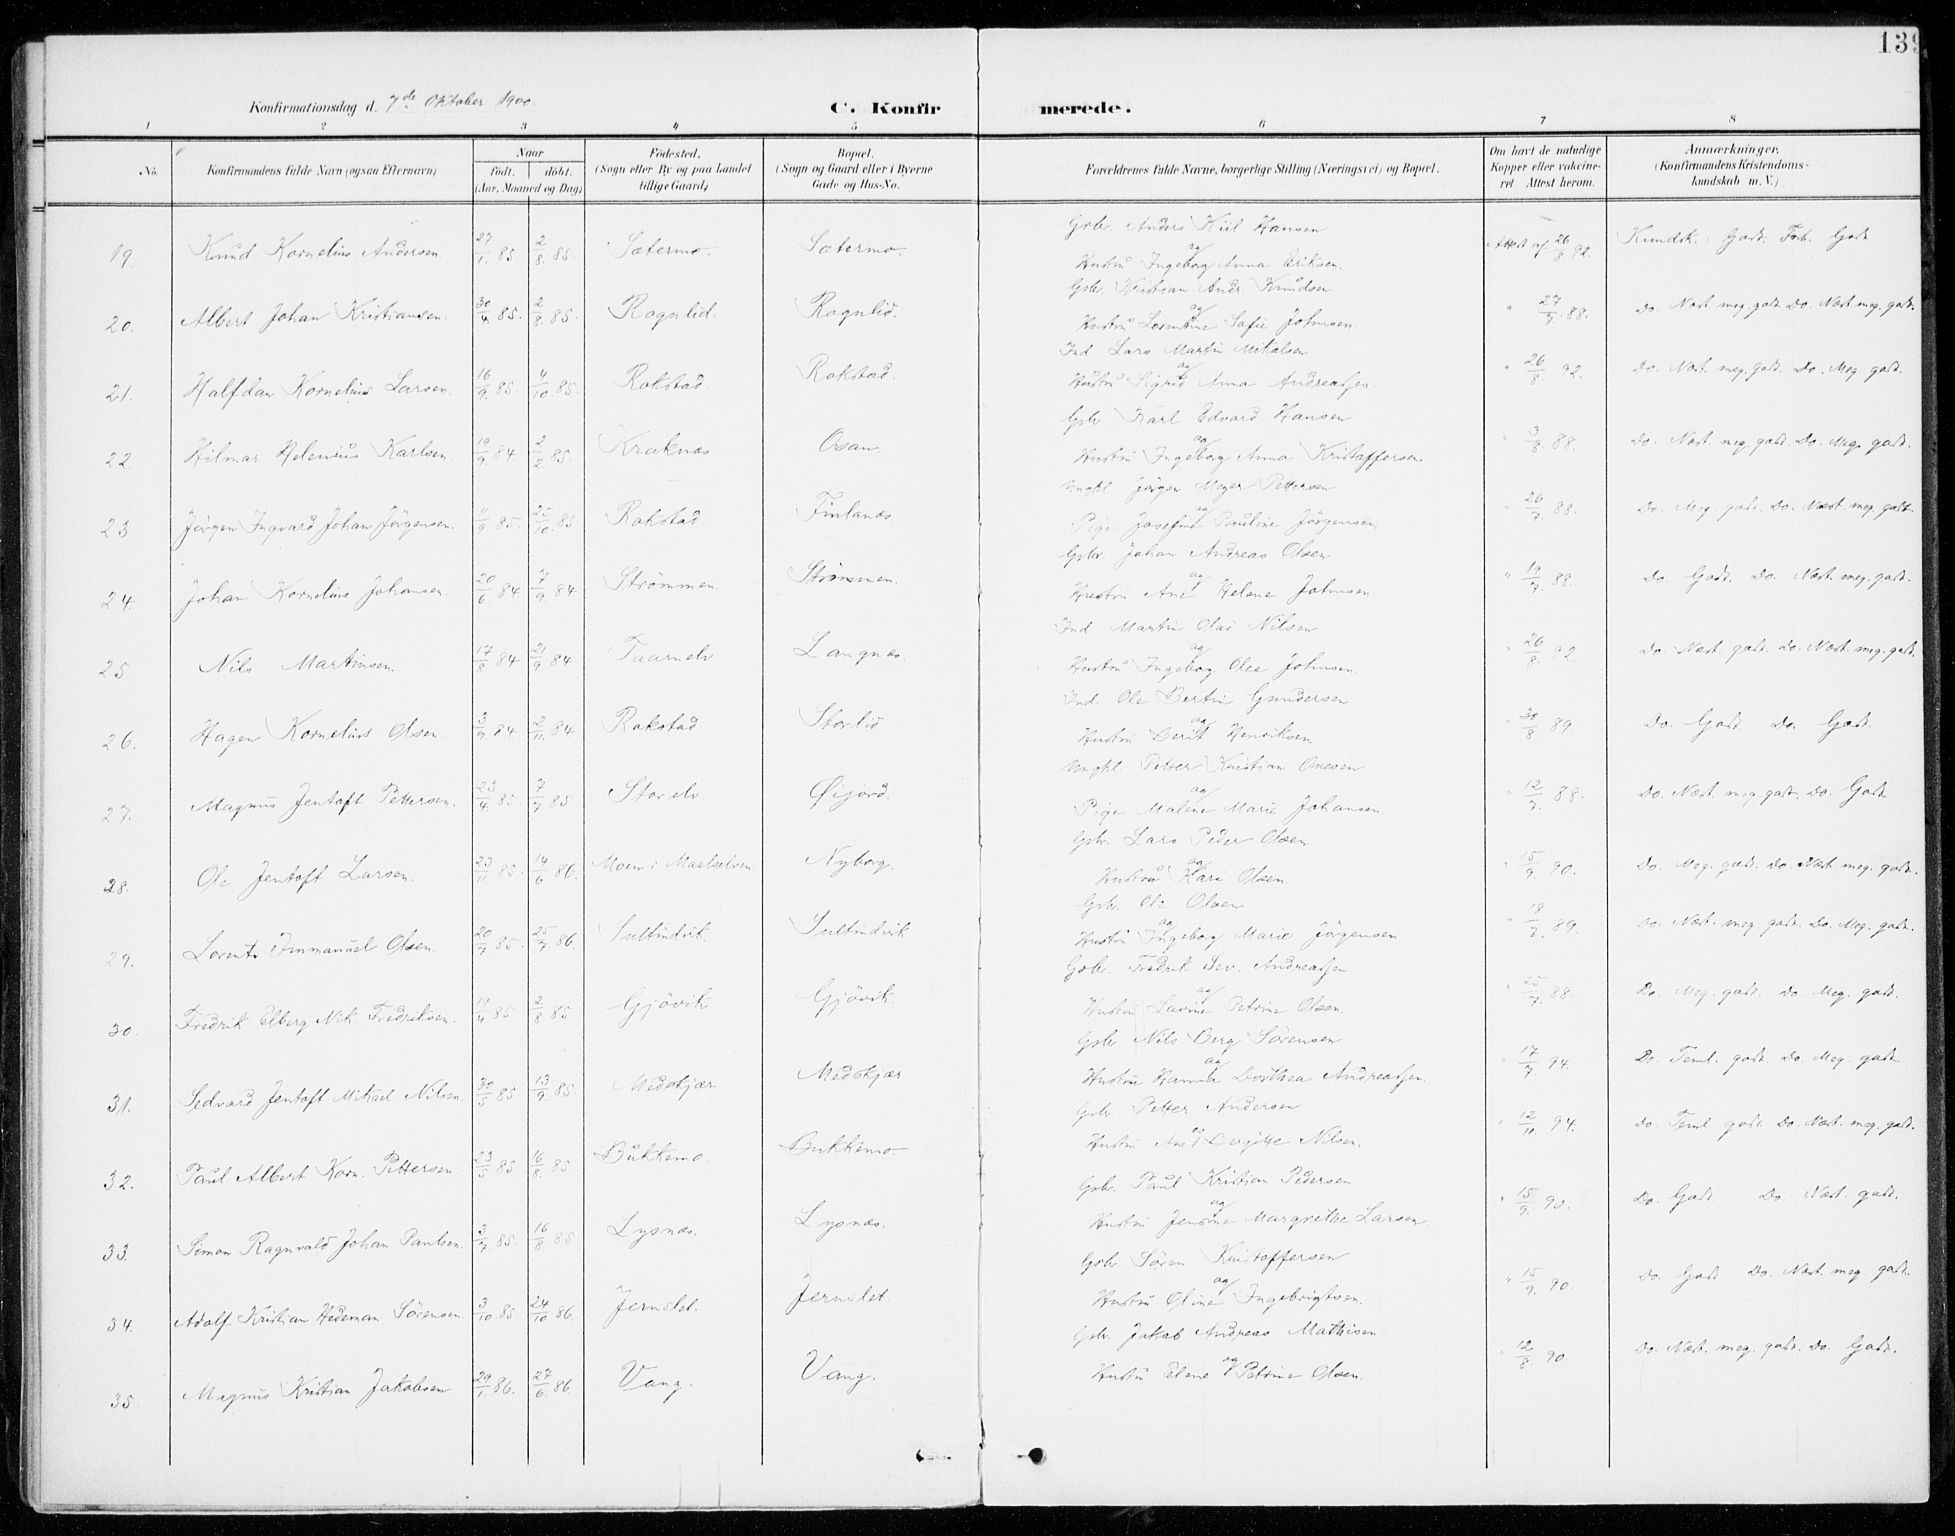 139
Konfirmationsdag d. 7de Oktober 1900.
C. Konfirmerede.
1 2 3 4 5 6 7 8
No. Konfirmandens fulde Navn (ogsaa Efternavn) Naar født. døbt. (Aar, Maaned og Dag) Fødested. (Sogn eller By og paa Landet tillige Gaard) Bopæl. (Sogn og Gaard eller i Byerne Gade og Hus-No. Forældrenes fulde Navne, borgerlige Stilling (Næringsvei) og Bopæl. Om havt de naturlige Kopper eller vaccineret Attest herom. Anmærkninger. (Konfirmandens Kristendomskundskab m. V.)
19. Knud Kornelius Andersen. 27/1. 85. 2/8. 85. Sætermo. Sætermo. Gbr. Anders Kiil Hansen og Hustru Ingeborg Anna Eriksen. Attest af 26/8 92. Kundsk.: Godt. Forh. Godt
20. Albert Johan Kristiansen. 30/4. 85. 2/8. 85. Rognlid. Rognlid. Gbr. Kristian Andr. Knudsen og Hustru Lorentine Sofie Johnsen. " 27/7. 88. Do. Næst meg. godt. Do. Næst meg. godt.
21. Halfdan Kornelius Larsen. 16/9. 85. 4/10. 85. Rokstad. Rokstad. Ind. Lars Martin Mikalsen og Hustru Sigrid Anna Andreassen. " 26/8 92. Do. Næst. meg. godt. Do. Meg. godt.
22. Hilmar Helenius Karlsen. 19/9. 84. 2/2. 85. Kraknæs Osan. Gbr. Karl Edvard Hansen og Hustru Ingeborg Anna Kristoffersen. " 3/8. 88. Do. Næst. meg. godt. Do. Meg. godt.
23 Jörgen Ingvard Johan Jörgensen. 11/9 85. 25/10. 85 Rokstad Finlanæs. Ungkl. Jörgen Meyer Pettersen og Pige Josefine Pauline Jörgensen. " 26/7 88. Do. Meg. godt. Do. Næst. meg. godt.
24. Johan Kornelius Johansen. 20/6. 84 7/9. 84 Strömmen. Strömmen. Gbr. Johan Andreas Olsen og Hustru Ane Helene Johnsen. " 19/7. 88. Do. Godt. Do. Næst. meg. godt.
25. Nils Martinsen. 17/8 84 21/9 84 Taarnelv. Langnæs. Ind. Martin Olai Nilsen og Hustru Ingeborg Olea Johnsen. " 26/8. 92. Do. Næst. godt. Do. Næst. meg. godt.
26. Hagen Kornelius Olsen. 3/9 84 2/11. 84. Rokstad. Storlid Ind. Ole Bertin Gundersen og Hustru Berit Henriksen. " 30/8 89 Do Godt. Do. Godt.
27. Magnus Jentoft Pettersen. 23/4. 85. 7/7 85 Storelv Øijord. Ungkl. Petter Kristian Ovesen og Pige Malene Marie Johansen. " 12/7. 88. Do. Næst. meg. godt. Do. Godt
28. Ole Jentoft Larsen. 23/11. 85. 14/6. 86. Moen i Maalselven Nyborg. Gbr. Lars Peder Olsen og Hustru Kari Olsen. " 15/9. 90. Do. Meg. godt. Do. Næst. meg. godt.
29. Lorents Immanuel Olsen. 20/7. 85. 25/7. 86. Sultindvik. Sultindvik Gbr. Ole Olsen og Hustru Ingeborg Marie Jörgensen. " 18/7. 89. Do. Næst. meg. godt. Do. Meg. godt.
30. Fredrik Elberg Nik. Fredriksen. 19/4 85. 2/8 85 Gjövik Gjövik. Gbr. Fredrik Sev. Andreassen og Hustru Lavine Petrine Olsen. " 25/7. 88 Do. Meg. godt. Do. Meg. godt.
31. Sedvard Jentoft Mikael Nilsen. 30/5 85. 13/9. 85. Medskjær Medskjær Gbr. Nils Berg Sörensen og Hustru Hanna Dorthea Andreassen. " 17/7. 94. Do. Teml. godt. Do. Meg. godt.
32. Paul Albert Korn. Pettersen. 23/5 85 16/8. 85 Bukkemo. Bukkemo. Gbr. Petter Andersen og Hustru Ane Bergitte Nilsen. " 12/11. 94. Do. Teml godt. Do. Næst. meg. godt.
33. Simon Ragnvald Johan Paulsen. 3/7 85. 16/8 85 Lysnæs. Lysnæs. Gbr. Paul Kristian Pedersen og Hustru Jensine Margrethe Larsen. " 15/9. 90. Do. Godt. Do. Næst. godt.
34. Adolf Kristian Hedeman Sörensen. 3/10 85. 24/10 86. Jernslet. Jernslet Gbr. Sören Kristoffersen og Hustru Oline Ingebrigtsen. " 15/9. 90 Do. Godt Do. Næst. meg. godt.
35. Magnus Kristian Jakobsen 29/1. 86. 27/6. 86. Vang. Vang. Gbr. Jakob Andreas Mathisen og Hustru Elene Petrine Olsen. " 12/8 90. Do. Næst. meg. godt. Do. Godt.